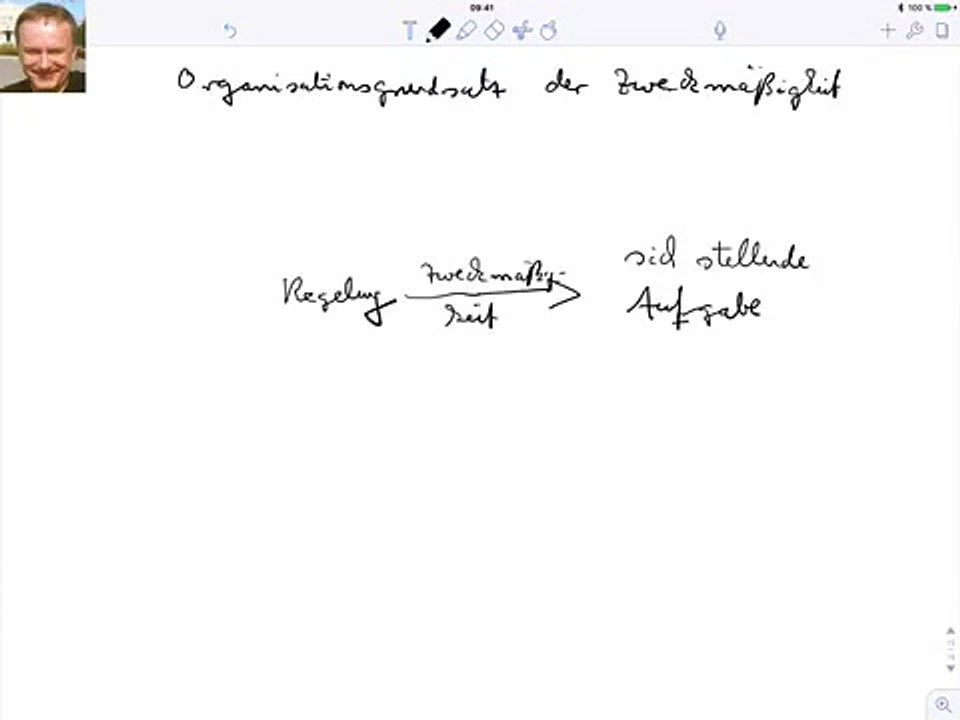 09:41
100 %
T
Organisationsgrundsatz der Zweckmäßigkeit
Regelung
Zweckmäßig-
keit
sich stellende
Aufgabe